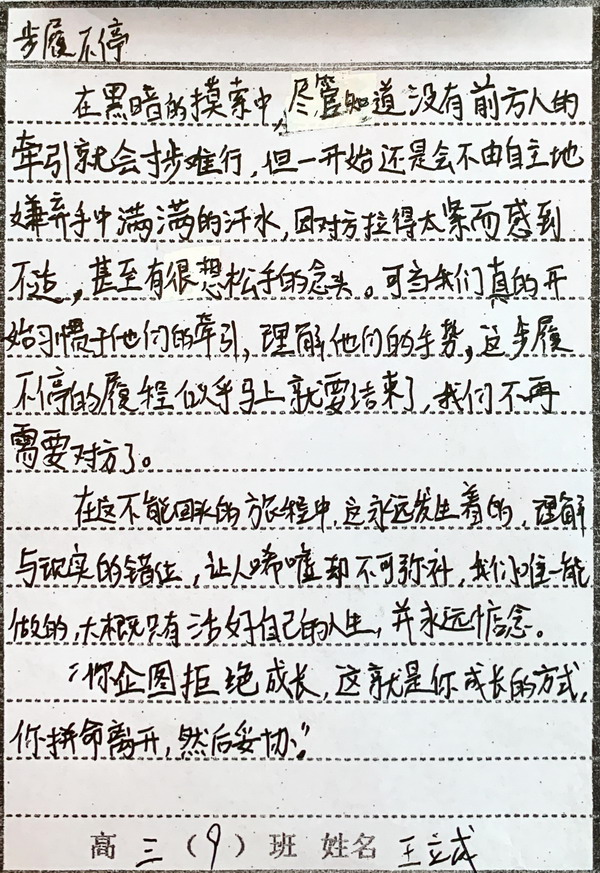 步履不停
在黑暗的摸索中,尽管知道没有前方人的
牵引就会寸步难行,但一开始还是会不由自主地
嫌弃手中满满的汗水,因对方拉得太紧而感到
不适,甚至有很想松手的念头。可当我们真的开
始习惯于他们的牵引,理解他们的手势,这步履
不停的履程似乎马上就要结束了,我们不再
需要对方了。
在这不能回头的旅程中,这永远发生着的,理解
与现实的错位,让人唏嘘却不可弥补,我们唯一能
做的,大概只有活好自己的人生,并永远惦念。
“你企图拒绝成长,这就是你成长的方式,
你拼命离开,然后妥协。”
高三(9)班 姓名 王立成